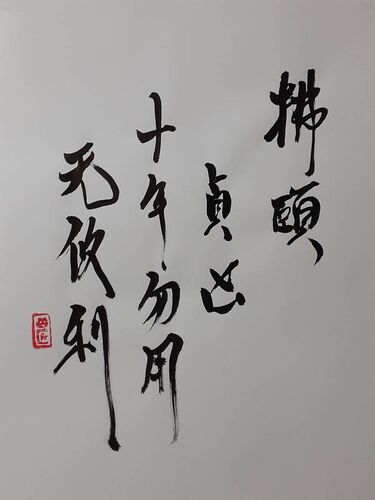 拂頤
貞凶
十年勿用
无攸利